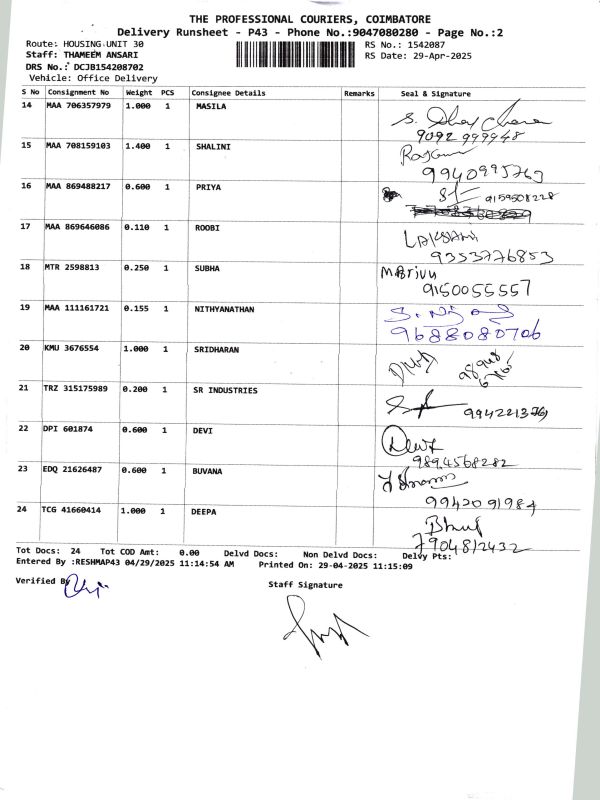 THE PROFESSIONAL COURIERS, COIMBATORE
Delivery Runsheet - P43 - Phone No.:9047080280 - Page No.:2
Route: HOUSING UNIT 30 RS No.: 1542087
Staff: THAMEEM ANSARI RS Date: 29-Apr-2025
DRS No.: DCJB154208702
Vehicle: Office Delivery
S No Consignment No Weight PCS Consignee Details Remarks Seal & Signature
14 MAA 706357979 1.000 1 MASILA
9092 999948
15 MAA 708159103 1.400 1 SHALINI
9940995763
16 MAA 869488217 0.600 1 PRIYA
9159508228
17 MAA 869646086 0.110 1 ROOBI LAKSHMI
9353776853
18 MTR 2598813 0.250 1 SUBHA
9150055557
19 MAA 111161721 0.155 1 NITHYANATHAN
9688080706
20 KMU 3676554 1.000 1 SRIDHARAN
21 TRZ 315175989 0.200 1 SR INDUSTRIES
22 DPI 601874 0.600 1 DEVI
9894568282
23 EDQ 21626487 0.600 1 BUVANA
9942091984
24 TCG 41660414 1.000 1 DEEPA
7904812432
Tot Docs: 24 Tot COD Amt: 0.00 Delvd Docs: Non Delvd Docs: Delvy Pts:
Entered By :RESHMAP43 04/29/2025 11:14:54 AM Printed On: 29-04-2025 11:15:09
Verified By Staff Signature